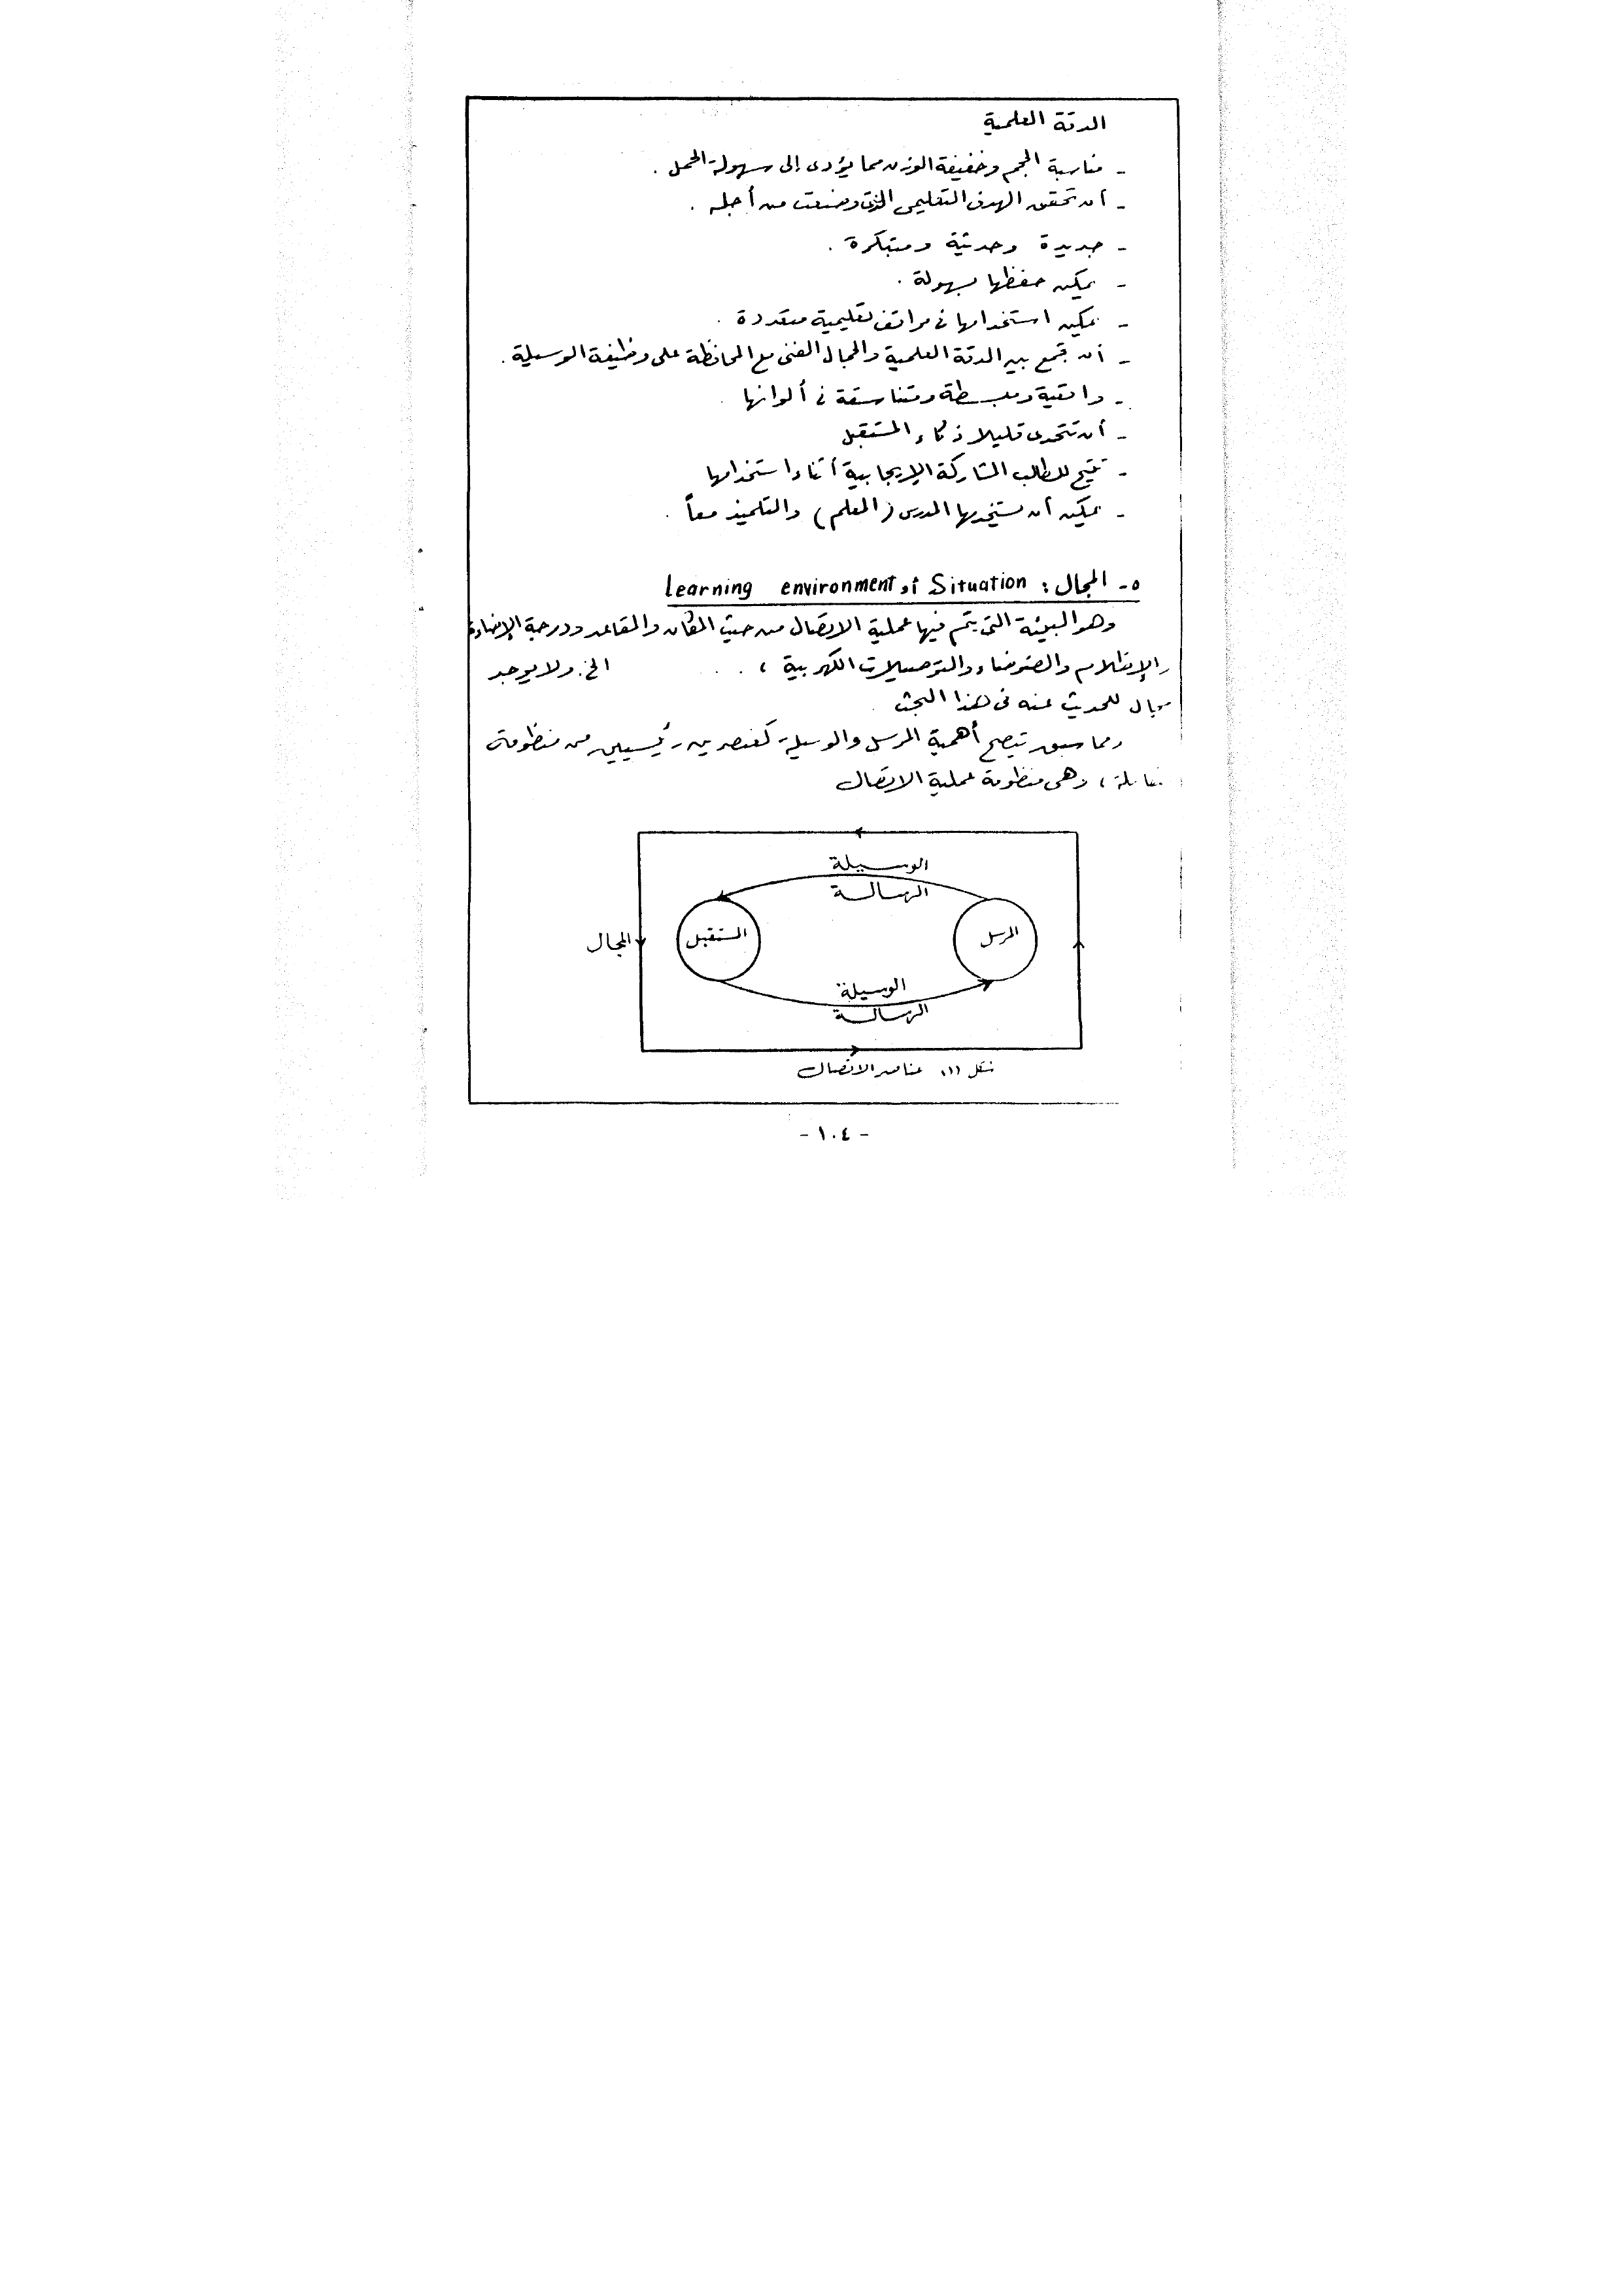 الدقة العلمية
- مناسبة الحجم وخفيفة الوزن مما يؤدى إلى سهولة الحمل .
- أن تحقق الهدف التعليمى الذى وضعت من أجله .
- جديدة وحديثة ومبتكرة .
- يمكن حفظها بسهولة .
- يمكن استخدامها فى مواقف تعليمية متعددة .
- أن تجمع بين الدقة العلمية والجمال الفنى مع المحافظة على وظيفة الوسيلة .
- واقعية ومبسطة ومتناسقة فى ألوانها .
- أن تتحدى قليلا ذكاء المستقبل
- تتيح للطالب المشاركة الإيجابية أثناء استخدامها
- يمكن أن يستخدمها المدرس (المعلم) والتلميذ معاً .
٥- المجال : Situation أو Learning environment
وهو البيئة التى يتم فيها عملية الاتصال من حيث المكان والمقاعد ودرجة الإضاءة
والإظلام والضوضاء والتوصيلات الكهربية ، . . . الخ . ولا يوجد
مجال للحديث عنه فى هذا البحث .
ومما سبق تتضح أهمية المرسل والوسيلة كعنصرين رئيسيين من منظومة
، وهى منظومة عملية الاتصال
الوسيلة
الرسالة
المرسل
المستقبل
المجال
الوسيلة
الرسالة
شكل (١) عناصر الاتصال
- ١٠٤ -